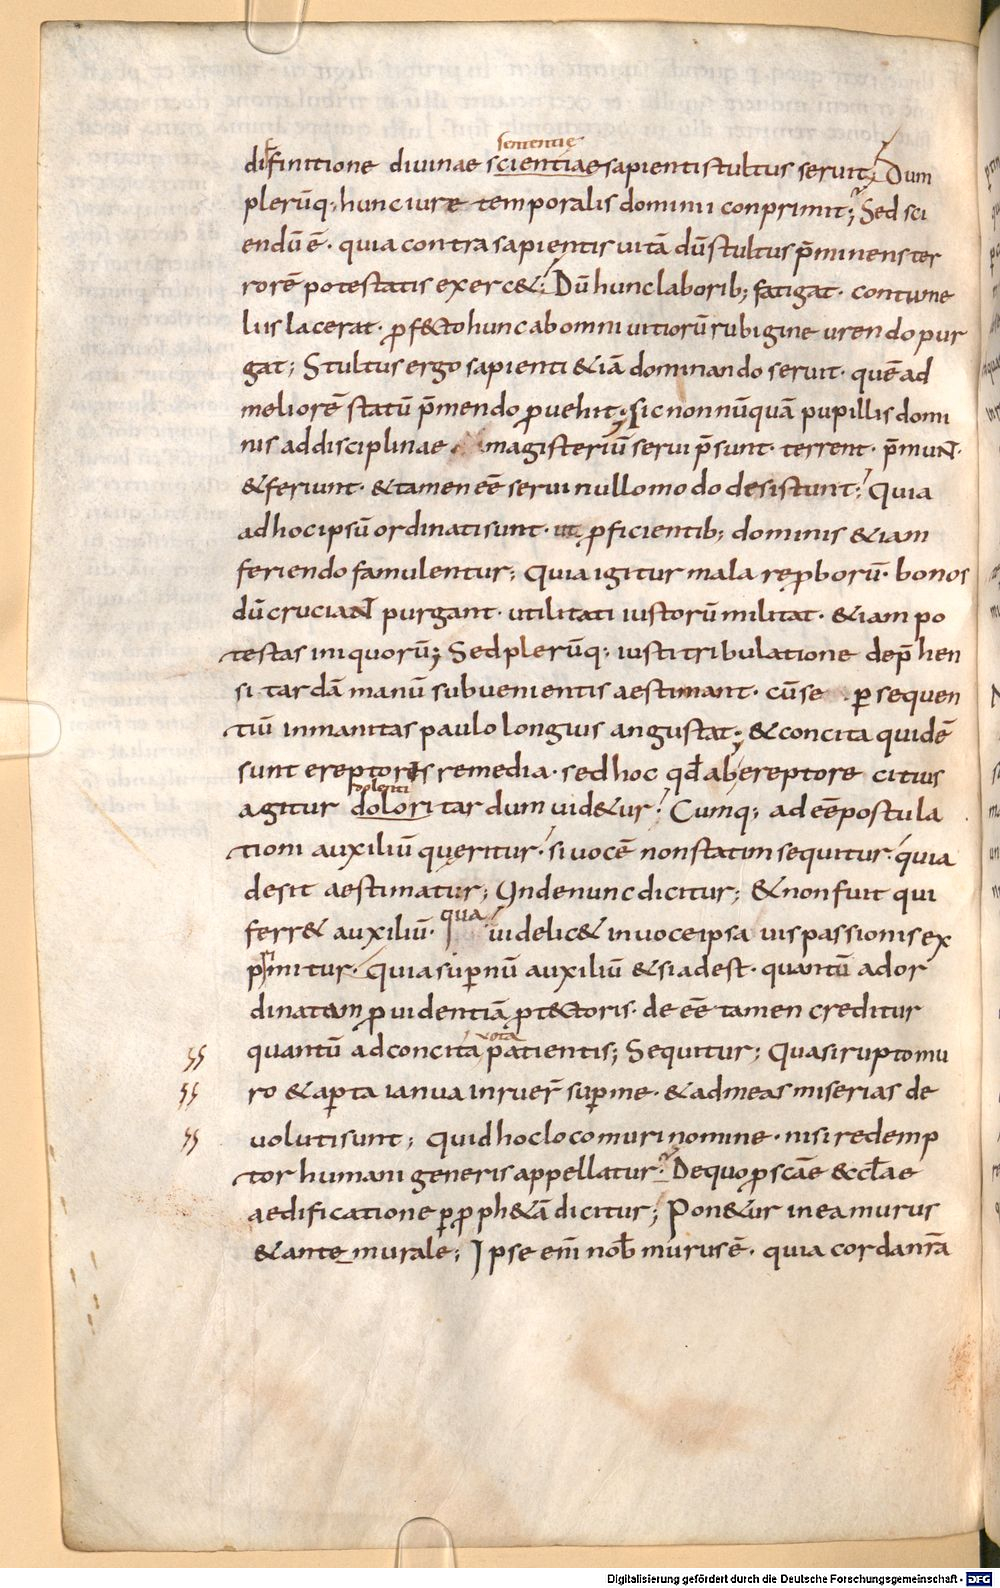 sententię
diffinitione divinae scientiae sapienti stultus servit; Dum
plerūq; hunc iure temporalis dominii conprimit; Sed sci
endū ē· quia contra sapientis vitā dū stultus p̄minens ter
rorē potestatis exerc&; Dū hunc laborib; fatigat· contume
liis lacerat· ꝓf&cto hunc ab omni vitiorū rubigine urendo pur
gat; Stultus ergo sapienti &iā dominando servit· quē ad
meliorē statū p̄mendo ꝓvehit; Sic nonnūquā pupillis domi
nis ad disciplinae magisteriū servi p̄sunt· terrent· p̄muN̄·
& feriunt· & tamen eē servi nullo modo desistunt; Quia
ad hoc ipsū ordinati sunt· ut ꝓficientib; dominis &iam
feriendo famulentur; Quia igitur mala reꝓborū· bonos
dū cruciaN̄ purgant· utilitati iustorū militat· &iam po
testas iniquorū; Sed plerūq; iusti tribulatione dep̄hen
si tardā manū subvenientis aestimant· cū se ꝑsequen
tiū inmanitas paulo longius angustat; & concita quidē
sunt ereptoris remedia· sed hoc qđ ab ereptore citius
dolenti
agitur dolori tardum vid&ur; Cumq; ad eē postula
tioni auxiliū quęritur· si vocē non statim sequitur· quia
desit aestimatur; Unde nunc dicitur; & non fuit qui
ferr& auxiliū· qua videlic& in voce ipsa vis passionis ex
p̄mitur· Quia supernū auxiliū & si adest· quantū ad or
dinatam ꝓvidentiā ꝓt&ctoris· deeē tamen creditur
vota
quantū ad concita patientis; Sequitur; Quasi rupto mu
ro & aꝑta ianua inruer̄ suꝑ me· & ad meas miserias de
voluti sunt; Quid hoc loco muri nomine· nisi redemp
tor humani generis appellatur· De quo ꝓ scāe eccƚae
aedificatione ꝑ ꝓph&ā dicitur; Pon&ur in ea murus
& ante murale; Ipse enī nob̄ murus ē· quia corda nr̄a